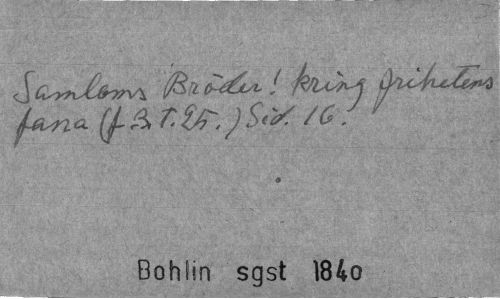 Samloms Bröder! kring frihetens
fana (f. 3. T. 25.) Sid. 16.
Bohlin sgst 1840